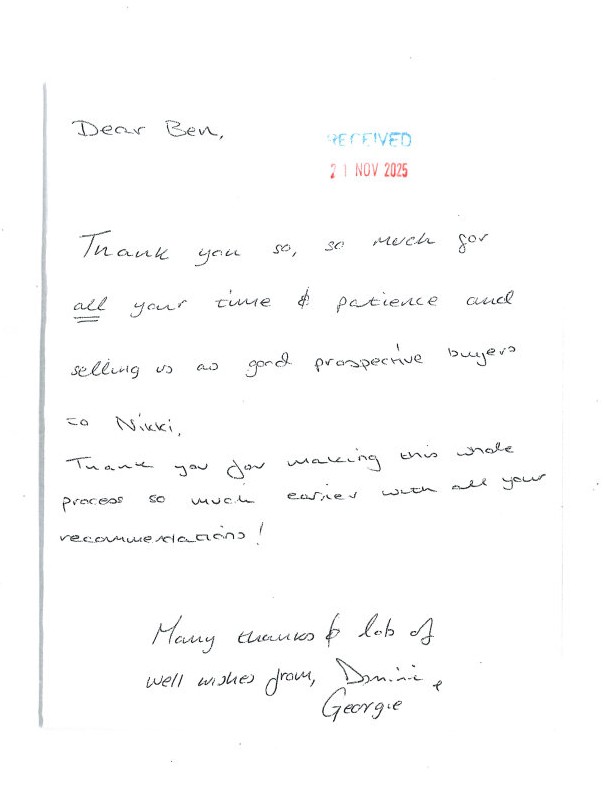 Dear Ben,
RECEIVED
21 NOV 2025
Thank you so, so much for
all your time & patience and
selling us as good prospective buyers
to Nikki.
Thank you for making this whole
process so much easier with all your
recommendations!
Many thanks & lots of
well wishes from, Dominic &
Georgie